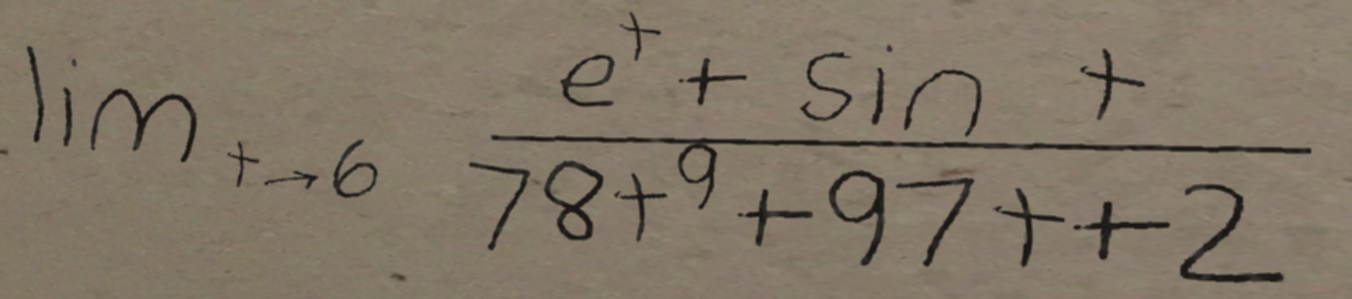 lim t→6 (e^t + sin t) / (78t^9 + 97t + 2)